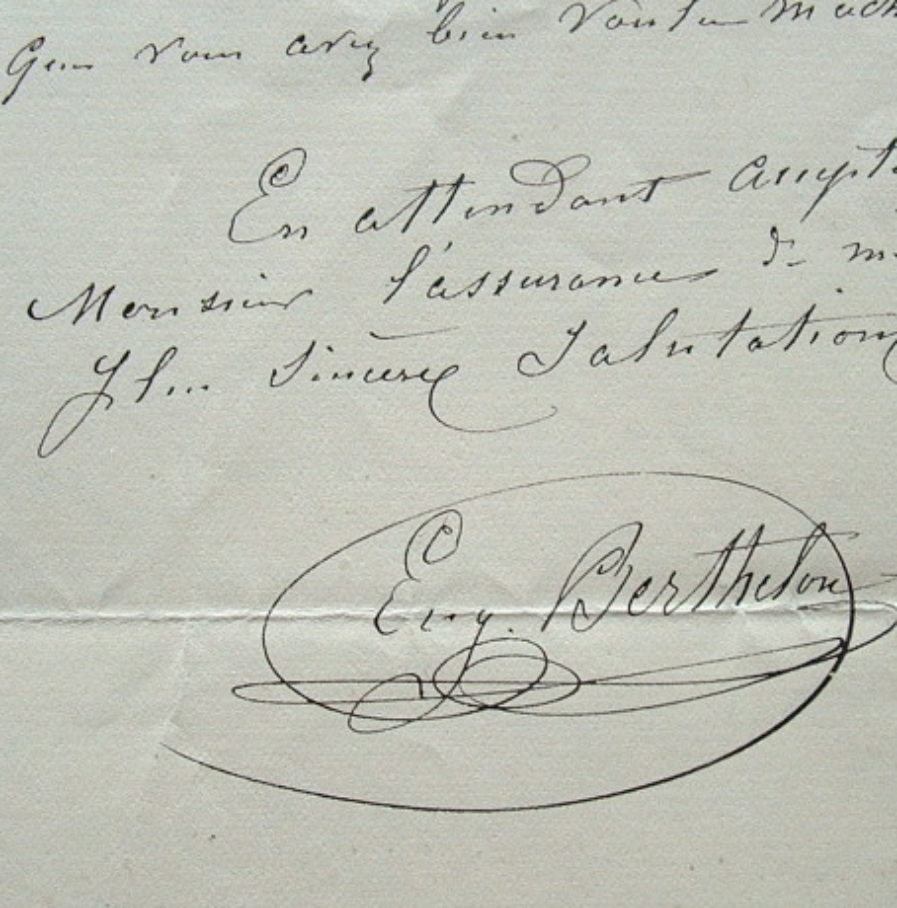 Que vous avez bien voulu
En attendant accepte
Monsieur l'assurance de m
plus sincères Salutations
Eug. Berthelon